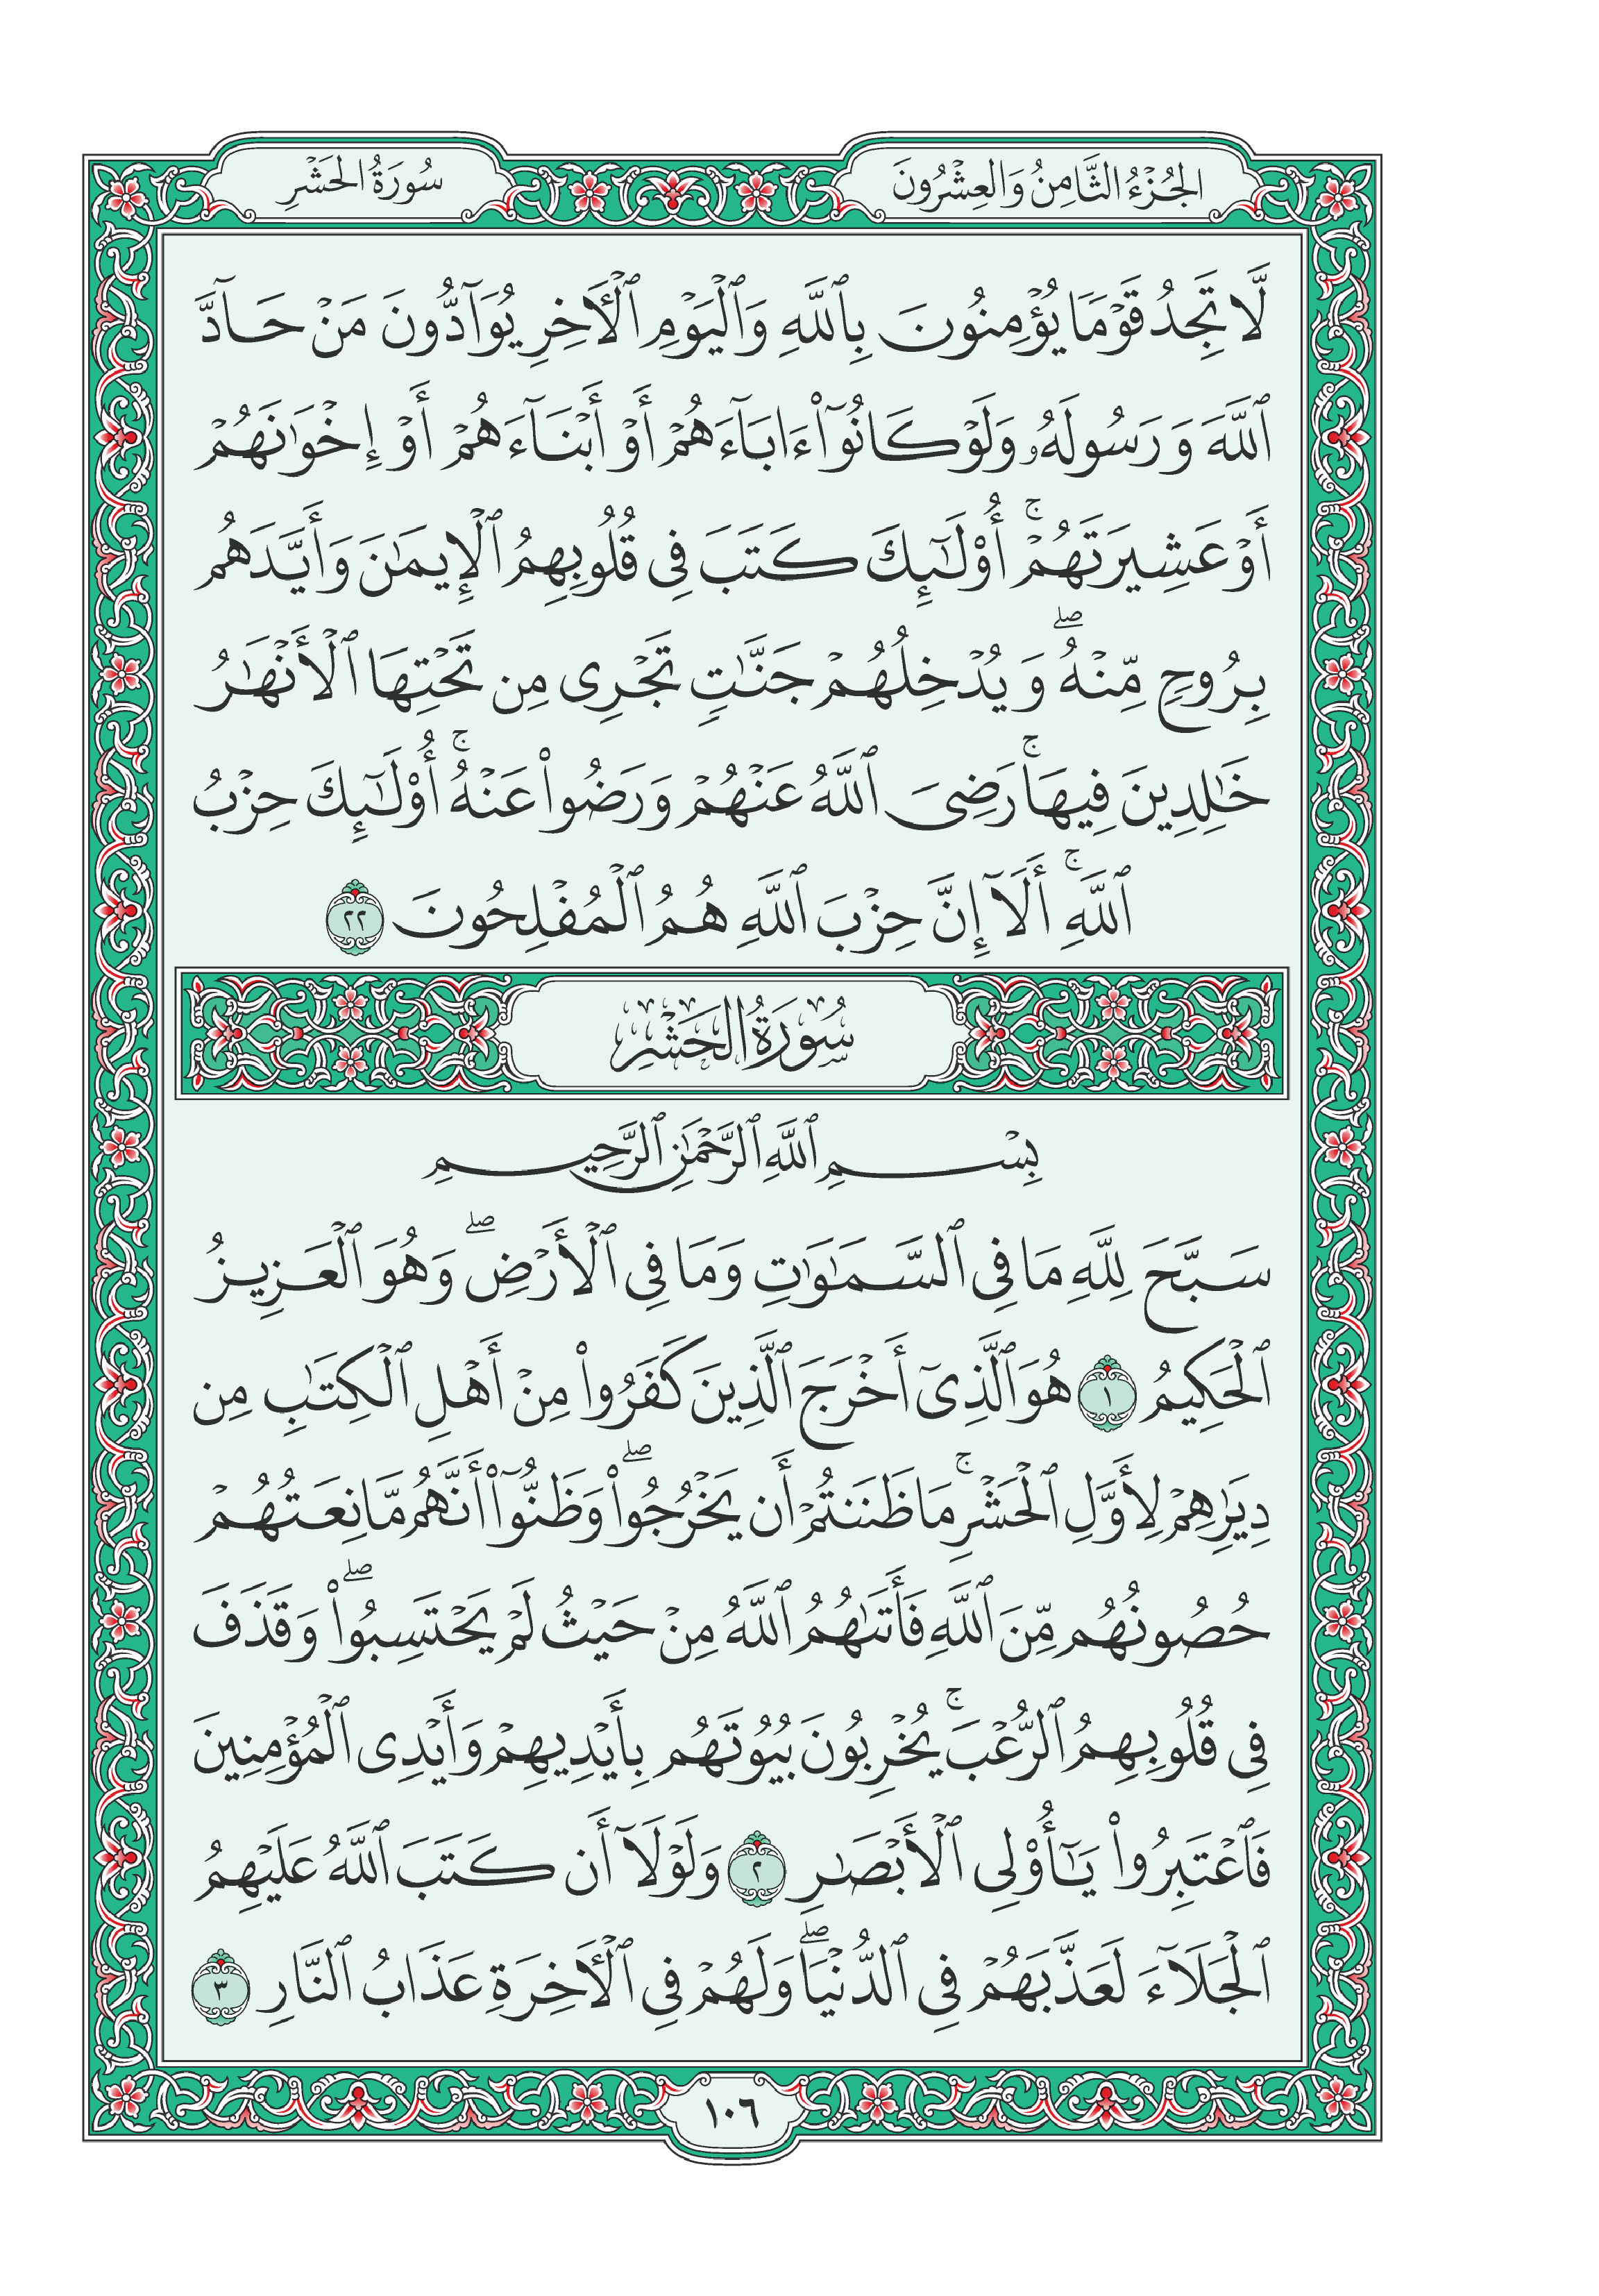 الجُزْءُ الثَّامِنُ وَالعِشْرُونَ
سُورَةُ الحَشْرِ
لَّا تَجِدُ قَوْمًا يُؤْمِنُونَ بِٱللَّهِ وَٱلْيَوْمِ ٱلْأَخِرِ يُوَآدُّونَ مَنْ حَآدَّ
ٱللَّهَ وَرَسُولَهُۥ وَلَوْ كَانُوٓا۟ ءَابَآءَهُمْ أَوْ أَبْنَآءَهُمْ أَوْ إِخْوَٰنَهُمْ
أَوْ عَشِيرَتَهُمْ ۚ أُو۟لَـٰٓئِكَ كَتَبَ فِى قُلُوبِهِمُ ٱلْإِيمَـٰنَ وَأَيَّدَهُم
بِرُوحٍ مِّنْهُ ۖ وَيُدْخِلُهُمْ جَنَّـٰتٍ تَجْرِى مِن تَحْتِهَا ٱلْأَنْهَـٰرُ
خَـٰلِدِينَ فِيهَا ۚ رَضِىَ ٱللَّهُ عَنْهُمْ وَرَضُوا۟ عَنْهُ ۚ أُو۟لَـٰٓئِكَ حِزْبُ
ٱللَّهِ ۚ أَلَآ إِنَّ حِزْبَ ٱللَّهِ هُمُ ٱلْمُفْلِحُونَ ٢٢
سُورَةُ الحَشْرِ
بِسْمِ ٱللَّهِ ٱلرَّحْمَـٰنِ ٱلرَّحِيمِ
سَبَّحَ لِلَّهِ مَا فِى ٱلسَّمَـٰوَٰتِ وَمَا فِى ٱلْأَرْضِ ۖ وَهُوَ ٱلْعَزِيزُ
ٱلْحَكِيمُ ١ هُوَ ٱلَّذِىٓ أَخْرَجَ ٱلَّذِينَ كَفَرُوا۟ مِنْ أَهْلِ ٱلْكِتَـٰبِ مِن
دِيَـٰرِهِمْ لِأَوَّلِ ٱلْحَشْرِ ۚ مَا ظَنَنتُمْ أَن يَخْرُجُوا۟ ۖ وَظَنُّوٓا۟ أَنَّهُم مَّانِعَتُهُمْ
حُصُونُهُم مِّنَ ٱللَّهِ فَأَتَىٰهُمُ ٱللَّهُ مِنْ حَيْثُ لَمْ يَحْتَسِبُوا۟ ۖ وَقَذَفَ
فِى قُلُوبِهِمُ ٱلرُّعْبَ ۚ يُخْرِبُونَ بُيُوتَهُم بِأَيْدِيهِمْ وَأَيْدِى ٱلْمُؤْمِنِينَ
فَٱعْتَبِرُوا۟ يَـٰٓأُو۟لِى ٱلْأَبْصَـٰرِ ٢ وَلَوْلَآ أَن كَتَبَ ٱللَّهُ عَلَيْهِمُ
ٱلْجَلَآءَ لَعَذَّبَهُمْ فِى ٱلدُّنْيَا ۖ وَلَهُمْ فِى ٱلْأَخِرَةِ عَذَابُ ٱلنَّارِ ٣
١٠٦